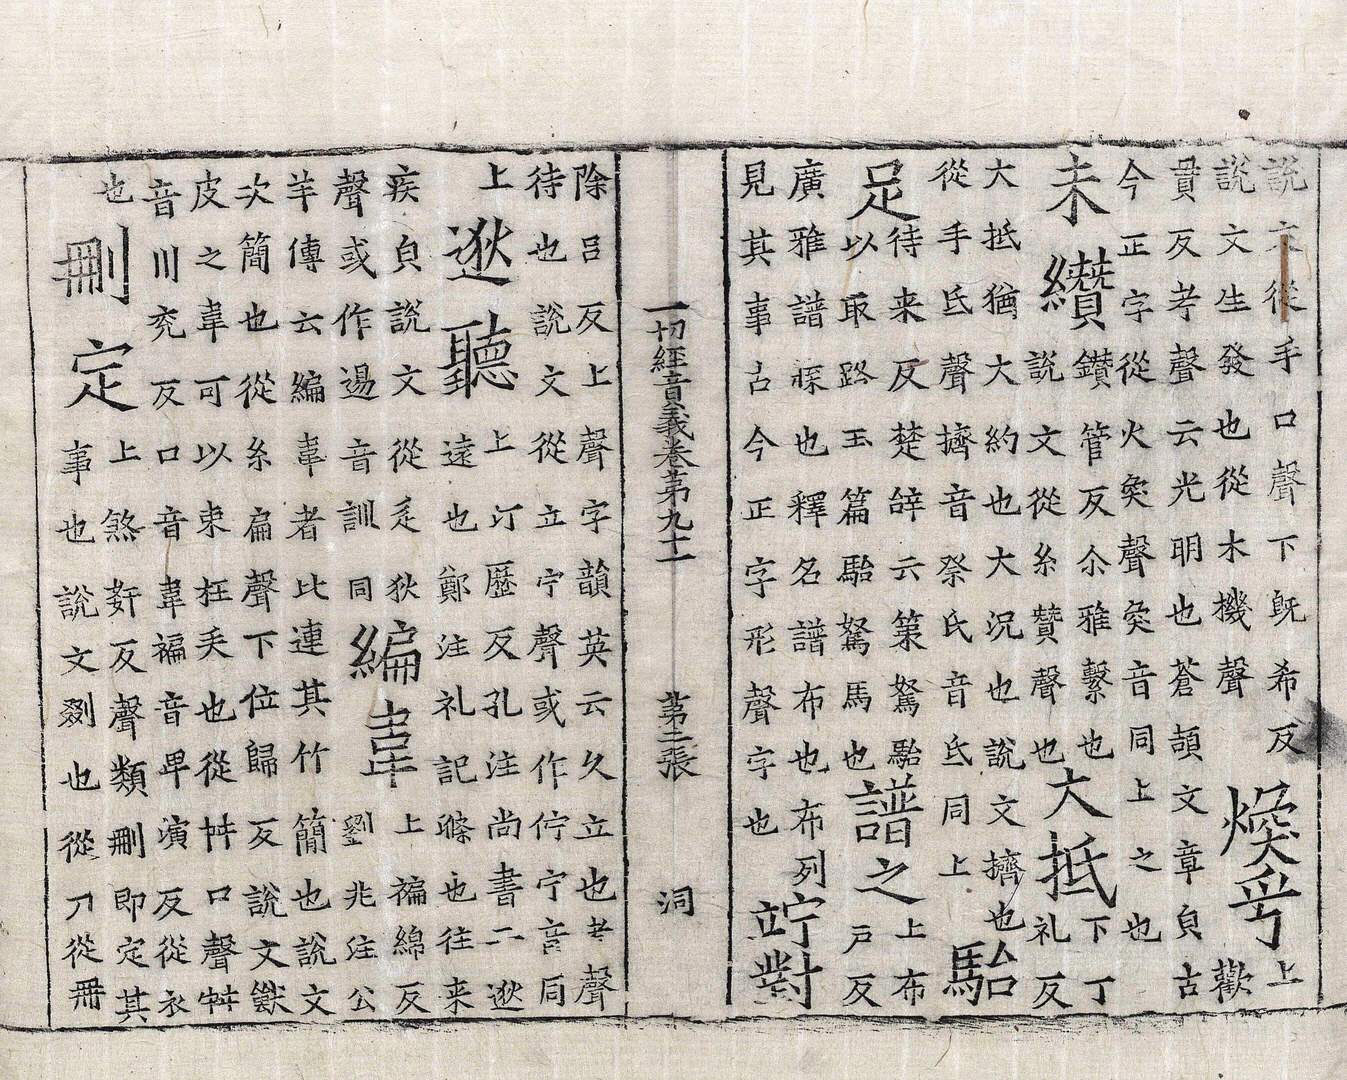 説文從手口聲下旣希反説文生發也從木機聲煥乎上歡
貫反考聲云光明也蒼頡文章皃古今正字從火奐聲奐音同上之也
未纘鑽管反尒雅繫也説文從糸贊聲也大抵下丁礼反
大抵猶大約也大況也說文擠也從手氐聲擠音祭氐音氐同上駘
足待来反楚辞云策駑駘以取路玉篇駘駑馬也譜之上布戸反
廣雅譜也釋名譜布也布列見其事古今正字形聲字也竚對
一切經音義卷第九十一 第二張 洞
除呂反上聲字韻英云久立也考聲待也說文從立宁聲或作佇宁音同
上逖聽上汀歷反孔注尚書二逖遠也鄭注礼記滌也往来
疾皃說文從辵狄聲或作逷音訓同編韋上褊綿反劉兆注公
羊傳云編韋者比連其竹簡也說文次簡也從糸扁聲下位歸反説文獸
皮之韋可以束枉戾也從舛口聲舛音川兖反口音韋褊音卑演反從衣
也刪定上煞姧反聲類刪即定其事也説文剟也從刀從冊